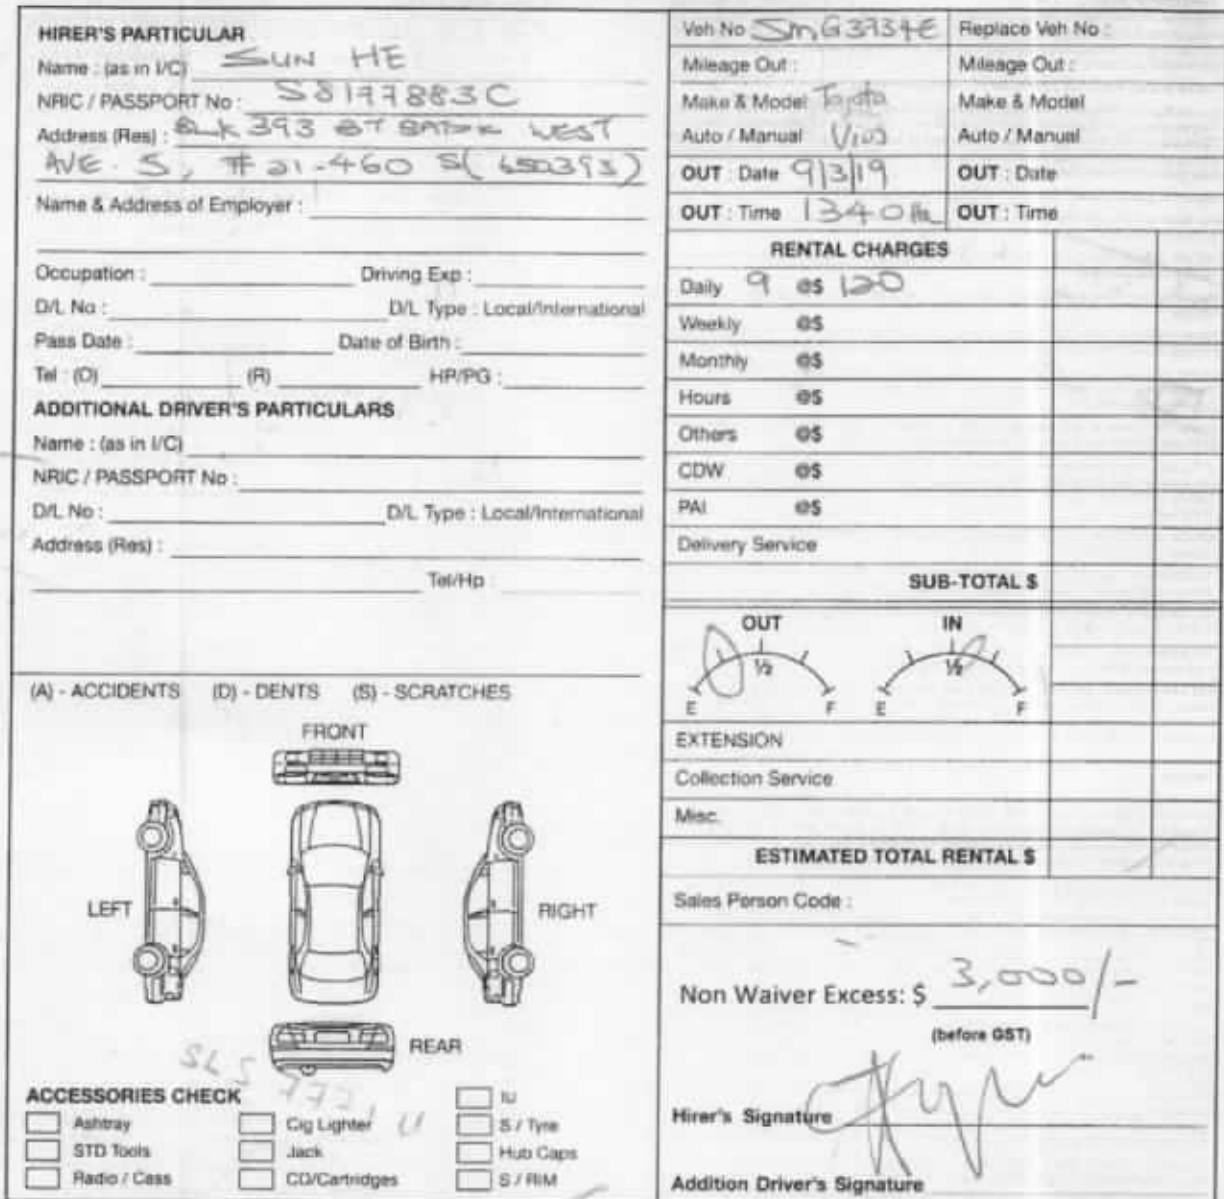 HIRER'S PARTICULAR
Name : (as in I/C) SUN HE
NRIC / PASSPORT No : S8177883C
Address (Res) : BLK 393 BT BATOK WEST
AVE. 5, # 21-460 S( 650393)
Name & Address of Employer :
Occupation : Driving Exp :
D/L No : D/L Type : Local/International
Pass Date : Date of Birth :
Tel : (O) (R) HP/PG :
ADDITIONAL DRIVER'S PARTICULARS
Name : (as in I/C)
NRIC / PASSPORT No :
D/L No : D/L Type : Local/International
Address (Res) :
Tel/Hp :
(A) - ACCIDENTS (D) - DENTS (S) - SCRATCHES
FRONT
LEFT
RIGHT
REAR
SLS 7771 U
ACCESSORIES CHECK
Ashtray Cig Lighter IU
STD Tools Jack S / Tyre
Radio / Cass CD/Cartridges Hub Caps
S / RIM
Veh No SMG3734E Replace Veh No :
Mileage Out : Mileage Out :
Make & Model Toyota Make & Model
Auto / Manual Vios Auto / Manual
OUT : Date 9/3/19 OUT : Date
OUT : Time 1340 OUT : Time
RENTAL CHARGES
Daily 9 @$ 120
Weekly @$
Monthly @$
Hours @$
Others @$
CDW @$
PAI @$
Delivery Service
SUB-TOTAL $
OUT IN
½ ½
E F E F
EXTENSION
Collection Service
Misc.
ESTIMATED TOTAL RENTAL $
Sales Person Code :
Non Waiver Excess: $ 3,000/-
(before GST)
Hirer's Signature
Addition Driver's Signature